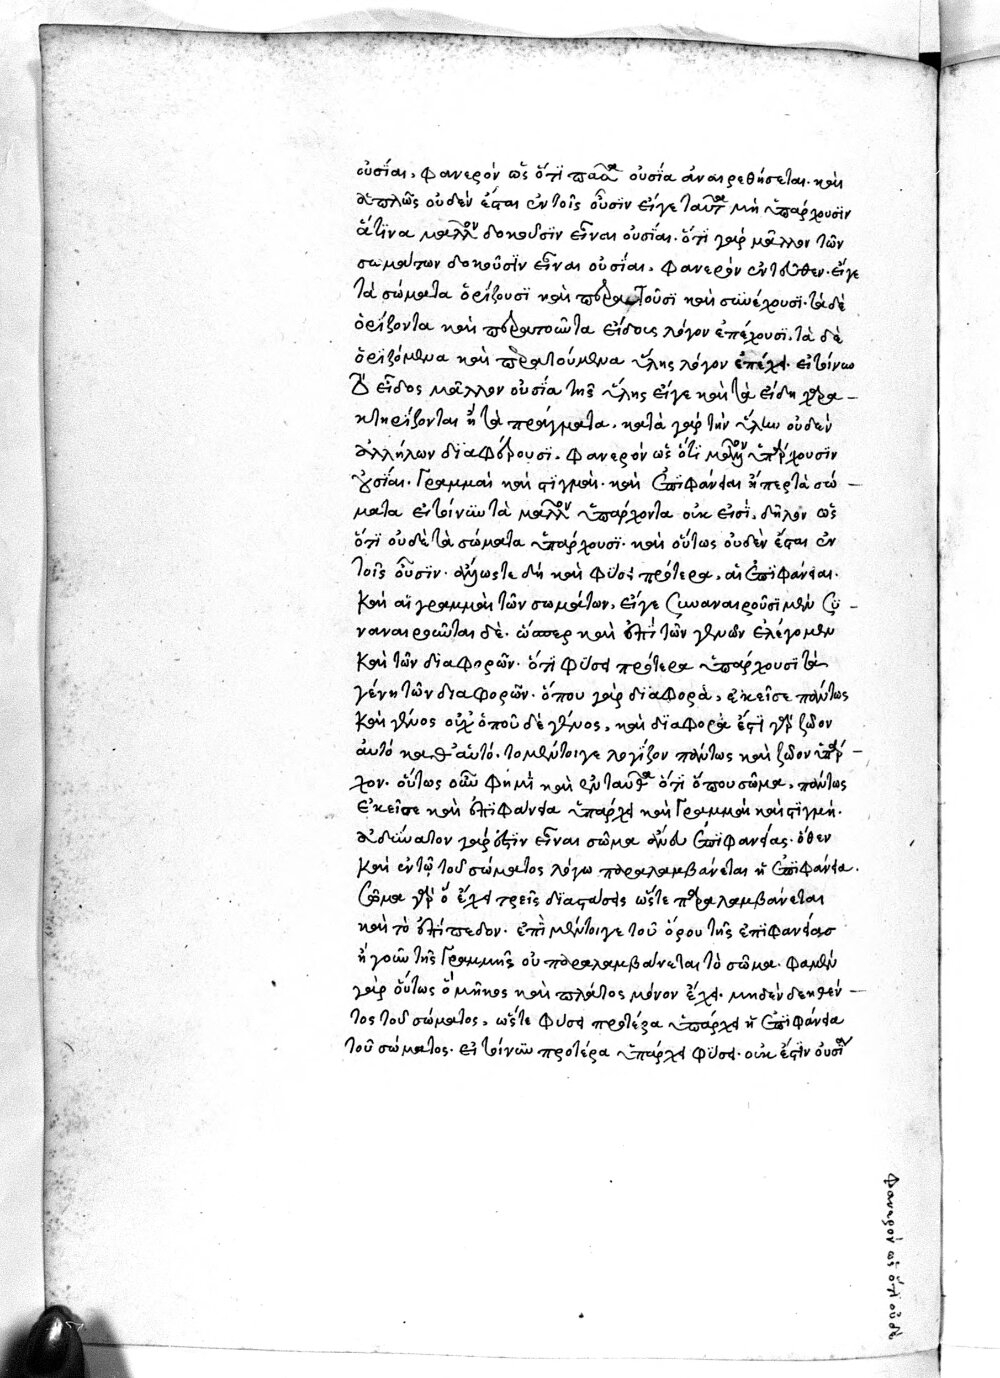 οὐσίαι, φανερὸν ὡς ὅτι πᾶσα οὐσία ἀναιρεθήσεται. καὶ
ἁπλῶς οὐδὲν ἔσται ἐν τοῖς οὖσιν εἴγε ταῦτα μὴ ὑπάρχουσιν
ἅτινα μᾶλλον δοκοῦσιν εἶναι οὐσίαι. ὅτι γὰρ μᾶλλον τῶν
σωμάτων δοκοῦσιν εἶναι οὐσίαι, φανερὸν ἐντεῦθεν. εἴγε
τὰ σώματα ὁρίζουσι καὶ περατοῦσι καὶ συνέχουσι. τὰ δὲ
ὁρίζοντα καὶ περατοῦντα εἴδους λόγον ἐπέχουσι, τὰ δὲ
ὁριζόμενα καὶ περατούμενα ὕλης λόγον ἐπέχει. εἰ τοίνυν
τὸ εἶδος μᾶλλον οὐσία τῆς ὕλης εἴγε κατὰ τὰ εἴδη χαρα
κτηρίζονται τὰ πράγματα, κατὰ γὰρ τὴν ὕλην οὐδὲν
ἀλλήλων διαφέρουσι, φανερὸν ὡς ὅτι μᾶλλον ὑπάρχουσιν
οὐσίαι. γραμμαὶ καὶ στιγμαὶ. καὶ ἐπιφάνειαι ἤπερ τὰ σώ
ματα εἰ τοίνυν τὰ μᾶλλον ὑπάρχοντα οὐκ εἰσί, δῆλον ὡς
ὅτι οὐδὲ τὰ σώματα ὑπάρχουσι. καὶ οὕτως οὐδὲν ἔσται ἐν
τοῖς οὖσιν. ἄλλως τε δὴ καὶ φύσει πρότερα, αἱ ἐπιφάνειαι.
καὶ αἱ γραμμαὶ τῶν σωμάτων, εἴγε συναναιροῦσι μὲν συ
ναναιροῦνται δὲ. ὥσπερ καὶ ἐπὶ τῶν γενῶν ἐλέγομεν
καὶ τῶν διαφορῶν. ὅτι φύσει πρότερα ὑπάρχουσι τὰ
γένη τῶν διαφορῶν. ὅπου γὰρ διαφορὰ, ἐκεῖσε πάντως
καὶ γένος οὐχ ὅπου δὲ γένος, καὶ διαφορὰ ἔστι γὰρ ζῶον
αὐτὸ καθ' αὑτό. τὸ μέντοιγε λογίζον πάντως καὶ ζῶον ὑπάρ
χον. οὕτως οὖν φημὶ καὶ ἐνταῦθα ὅτι ὅπου σῶμα, πάντως
ἐκεῖσε καὶ ἐπιφάνεια ὑπάρχει καὶ γραμμὴ καὶ στιγμή.
ἀδύνατον γάρ ἐστιν εἶναι σῶμα ἄνευ ἐπιφανείας. ὅθεν
καὶ ἐν τῷ τοῦ σώματος λόγω παραλαμβάνεται ἡ ἐπιφάνεια.
σῶμα γὰρ ὃ ἔχει τρεῖς διαστάσεις ὥστε παραλαμβάνεται
καὶ τὸ ἐπίπεδον. ἐπὶ μέντοιγε τοῦ ὅρου τῆς ἐπιφανείας
ἤγουν τῆς γραμμῆς οὐ παραλαμβάνεται τὸ σῶμα. φαμὲν
γὰρ οὕτως ὃ μῆκος καὶ πλάτος μόνον ἔχει. μηδὲν δεηθέν
τος τοῦ σώματος, ὥστε φύσει προτέρα ὑπάρχει ἡ ἐπιφάνεια
τοῦ σώματος. εἰ τοίνυν προτέρα ὑπάρχει φύσει. οὐκ ἔστιν οὐσία
φανερὸν ὡς ὅτι οὐδὲ